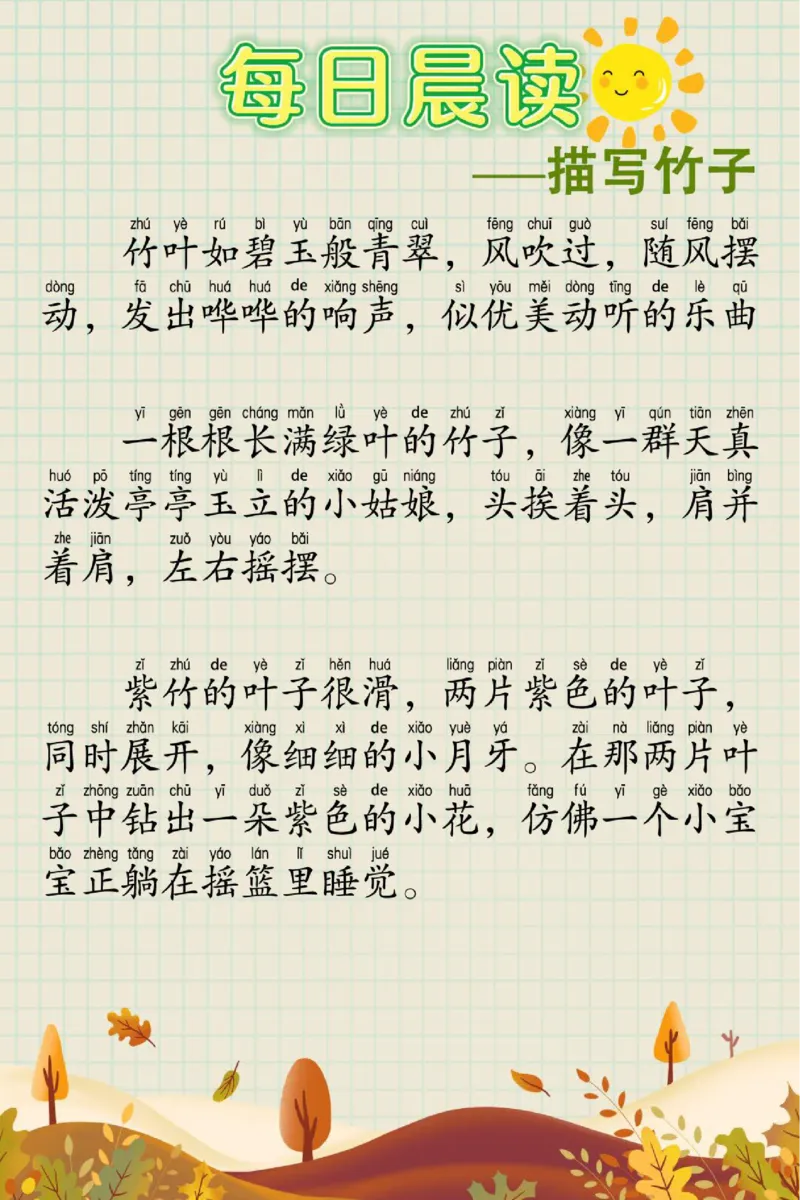 每日晨读
——描写竹子
zhú yè rú bì yù bān qīng cuì fēng chuī guò suí fēng bǎi
竹叶如碧玉般青翠，风吹过，随风摆
dòng fā chū huá huá de xiǎng shēng sì yōu měi dòng tīng de lè qǔ
动，发出哗哗的响声，似优美动听的乐曲
yī gēn gēn cháng mǎn lǜ yè de zhú zǐ xiàng yī qún tiān zhēn
一根根长满绿叶的竹子，像一群天真
huó pō tíng tíng yù lì de xiǎo gū niáng tóu āi zhe tóu jiān bìng
活泼亭亭玉立的小姑娘，头挨着头，肩并
zhe jiān zuǒ yòu yáo bǎi
着肩，左右摇摆。
zǐ zhú de yè zǐ hěn huá liǎng piàn zǐ sè de yè zǐ
紫竹的叶子很滑，两片紫色的叶子，
tóng shí zhǎn kāi xiàng xì xì de xiǎo yuè yá zài nà liǎng piàn yè
同时展开，像细细的小月牙。在那两片叶
zǐ zhōng zuān chū yī duǒ zǐ sè de xiǎo huā fǎng fú yī gè xiǎo bǎo
子中钻出一朵紫色的小花，仿佛一个小宝
bǎo zhèng tǎng zài yáo lán lǐ shuì jué
宝正躺在摇篮里睡觉。